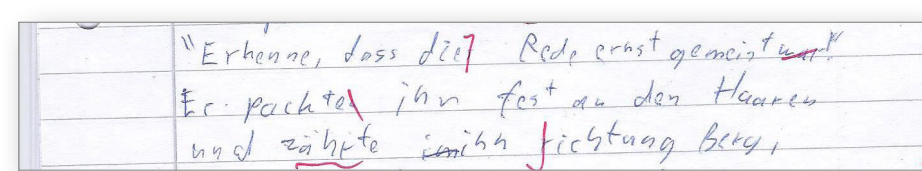 "Erkenne, dass die Rede ernst gemeint war!"
Er packte ihn fest an den Haaren
und zährte ihn richtung Berg,